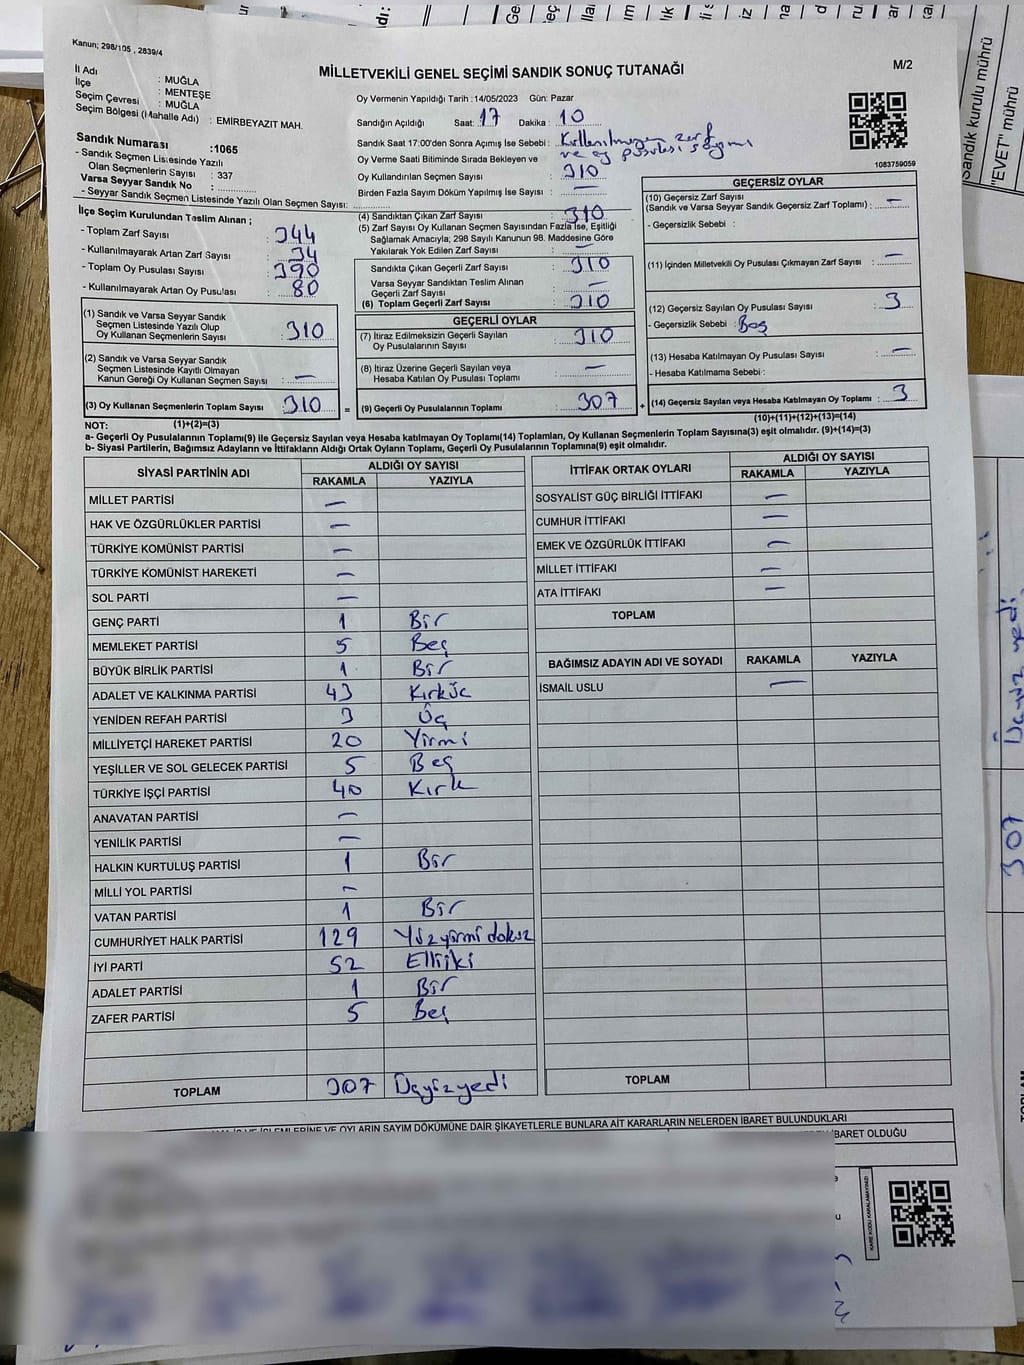 Kanun; 298/105 , 2839/4
MİLLETVEKİLİ GENEL SEÇİMİ SANDIK SONUÇ TUTANAĞI
M/2
İl Adı : MUĞLA
İlçe : MENTEŞE
Seçim Çevresi : MUĞLA
Seçim Bölgesi (Mahalle Adı) : EMİRBEYAZIT MAH.
Sandık Numarası :1065
- Sandık Seçmen Listesinde Yazılı
Olan Seçmenlerin Sayısı : 337
Varsa Seyyar Sandık No :
- Seyyar Sandık Seçmen Listesinde Yazılı Olan Seçmen Sayısı:
Oy Vermenin Yapıldığı Tarih :14/05/2023 Gün: Pazar
Sandığın Açıldığı Saat: 17 Dakika : 10
Sandık Saat 17:00'den Sonra Açımış İse Sebebi : Kullanılmayan zarf
ve oy pusulası sayımı
Oy Verme Saati Bitiminde Sırada Bekleyen ve
Oy Kullandırılan Seçmen Sayısı : 310
Birden Fazla Sayım Döküm Yapılmış İse Sayısı : —
1083759059
İlçe Seçim Kurulundan Teslim Alınan ;
- Toplam Zarf Sayısı : 344
- Kullanılmayarak Artan Zarf Sayısı : 34
- Toplam Oy Pusulası Sayısı : 390
- Kullanılmayarak Artan Oy Pusulası : 80
(1) Sandık ve Varsa Seyyar Sandık
Seçmen Listesinde Yazılı Olup
Oy Kullanan Seçmenlerin Sayısı : 310
(2) Sandık ve Varsa Seyyar Sandık
Seçmen Listesinde Kayıtlı Olmayan
Kanun Gereği Oy Kullanan Seçmen Sayısı : —
(3) Oy Kullanan Seçmenlerin Toplam Sayısı : 310 =
(1)+(2)=(3)
(4) Sandıktan Çıkan Zarf Sayısı : 310
(5) Zarf Sayısı Oy Kullanan Seçmen Sayısından Fazla İse, Eşitliği
Sağlamak Amacıyla; 298 Sayılı Kanunun 98. Maddesine Göre
Yakılarak Yok Edilen Zarf Sayısı : —
Sandıkta Çıkan Geçerli Zarf Sayısı : 310
Varsa Seyyar Sandıktan Teslim Alınan
Geçerli Zarf Sayısı : —
(6) Toplam Geçerli Zarf Sayısı : 310
GEÇERLİ OYLAR
(7) İtiraz Edilmeksizin Geçerli Sayılan
Oy Pusulalarının Sayısı : 310
(8) İtiraz Üzerine Geçerli Sayılan veya
Hesaba Katılan Oy Pusulası Toplamı : —
(9) Geçerli Oy Pusulalarının Toplamı : 307 +
GEÇERSİZ OYLAR
(10) Geçersiz Zarf Sayısı
(Sandık ve Varsa Seyyar Sandık Geçersiz Zarf Toplamı) : —
- Geçersizlik Sebebi :
(11) İçinden Milletvekili Oy Pusulası Çıkmayan Zarf Sayısı : —
(12) Geçersiz Sayılan Oy Pusulası Sayısı : 3
- Geçersizlik Sebebi : Boş
(13) Hesaba Katılmayan Oy Pusulası Sayısı : —
- Hesaba Katılmama Sebebi :
(14) Geçersiz Sayılan veya Hesaba Katılmayan Oy Toplamı : 3
(10)+(11)+(12)+(13)=(14)
NOT:
a- Geçerli Oy Pusulalarının Toplamı(9) ile Geçersiz Sayılan veya Hesaba katılmayan Oy Toplamı(14) Toplamları, Oy Kullanan Seçmenlerin Toplam Sayısına(3) eşit olmalıdır. (9)+(14)=(3)
b- Siyasi Partilerin, Bağımsız Adayların ve İttifakların Aldığı Ortak Oyların Toplamı, Geçerli Oy Pusulalarının Toplamına(9) eşit olmalıdır.
SİYASİ PARTİNİN ADI ALDIĞI OY SAYISI
RAKAMLA YAZIYLA
MİLLET PARTİSİ —
HAK VE ÖZGÜRLÜKLER PARTİSİ —
TÜRKİYE KOMÜNİST PARTİSİ —
TÜRKİYE KOMÜNİST HAREKETİ —
SOL PARTİ —
GENÇ PARTİ 1 Bir
MEMLEKET PARTİSİ 5 Beş
BÜYÜK BİRLİK PARTİSİ 1 Bir
ADALET VE KALKINMA PARTİSİ 43 Kırküç
YENİDEN REFAH PARTİSİ 3 Üç
MİLLİYETÇİ HAREKET PARTİSİ 20 Yirmi
YEŞİLLER VE SOL GELECEK PARTİSİ 5 Beş
TÜRKİYE İŞÇİ PARTİSİ 40 Kırk
ANAVATAN PARTİSİ —
YENİLİK PARTİSİ —
HALKIN KURTULUŞ PARTİSİ 1 Bir
MİLLİ YOL PARTİSİ —
VATAN PARTİSİ 1 Bir
CUMHURİYET HALK PARTİSİ 129 Yüzyirmidokuz
İYİ PARTİ 52 Elliiki
ADALET PARTİSİ 1 Bir
ZAFER PARTİSİ 5 Beş
TOPLAM 307 Üçyüzyedi
İTTİFAK ORTAK OYLARI ALDIĞI OY SAYISI
RAKAMLA YAZIYLA
SOSYALİST GÜÇ BİRLİĞİ İTTİFAKI —
CUMHUR İTTİFAKI —
EMEK VE ÖZGÜRLÜK İTTİFAKI —
MİLLET İTTİFAKI —
ATA İTTİFAKI —
TOPLAM
BAĞIMSIZ ADAYIN ADI VE SOYADI RAKAMLA YAZIYLA
İSMAİL USLU —
TOPLAM
İŞLEMLERİNE VE OYLARIN SAYIM DÖKÜMÜNE DAİR ŞİKAYETLERLE BUNLARA AİT KARARLARIN NELERDEN İBARET BULUNDUKLARI
İBARET OLDUĞU
KARE KODU KARALAMAYINIZ!
Sandık kurulu mührü
"EVET" mührü
307 Üçyüz yedi
TOPLAM